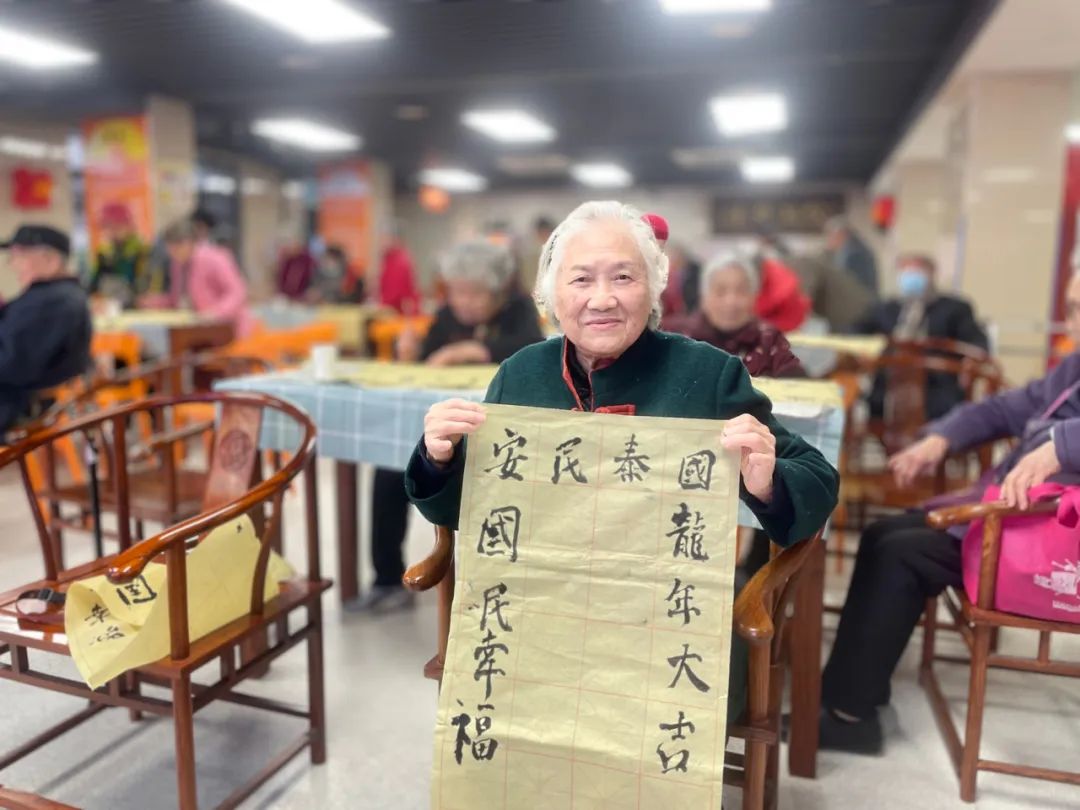 國泰民安
龍年大吉
國民幸福
國